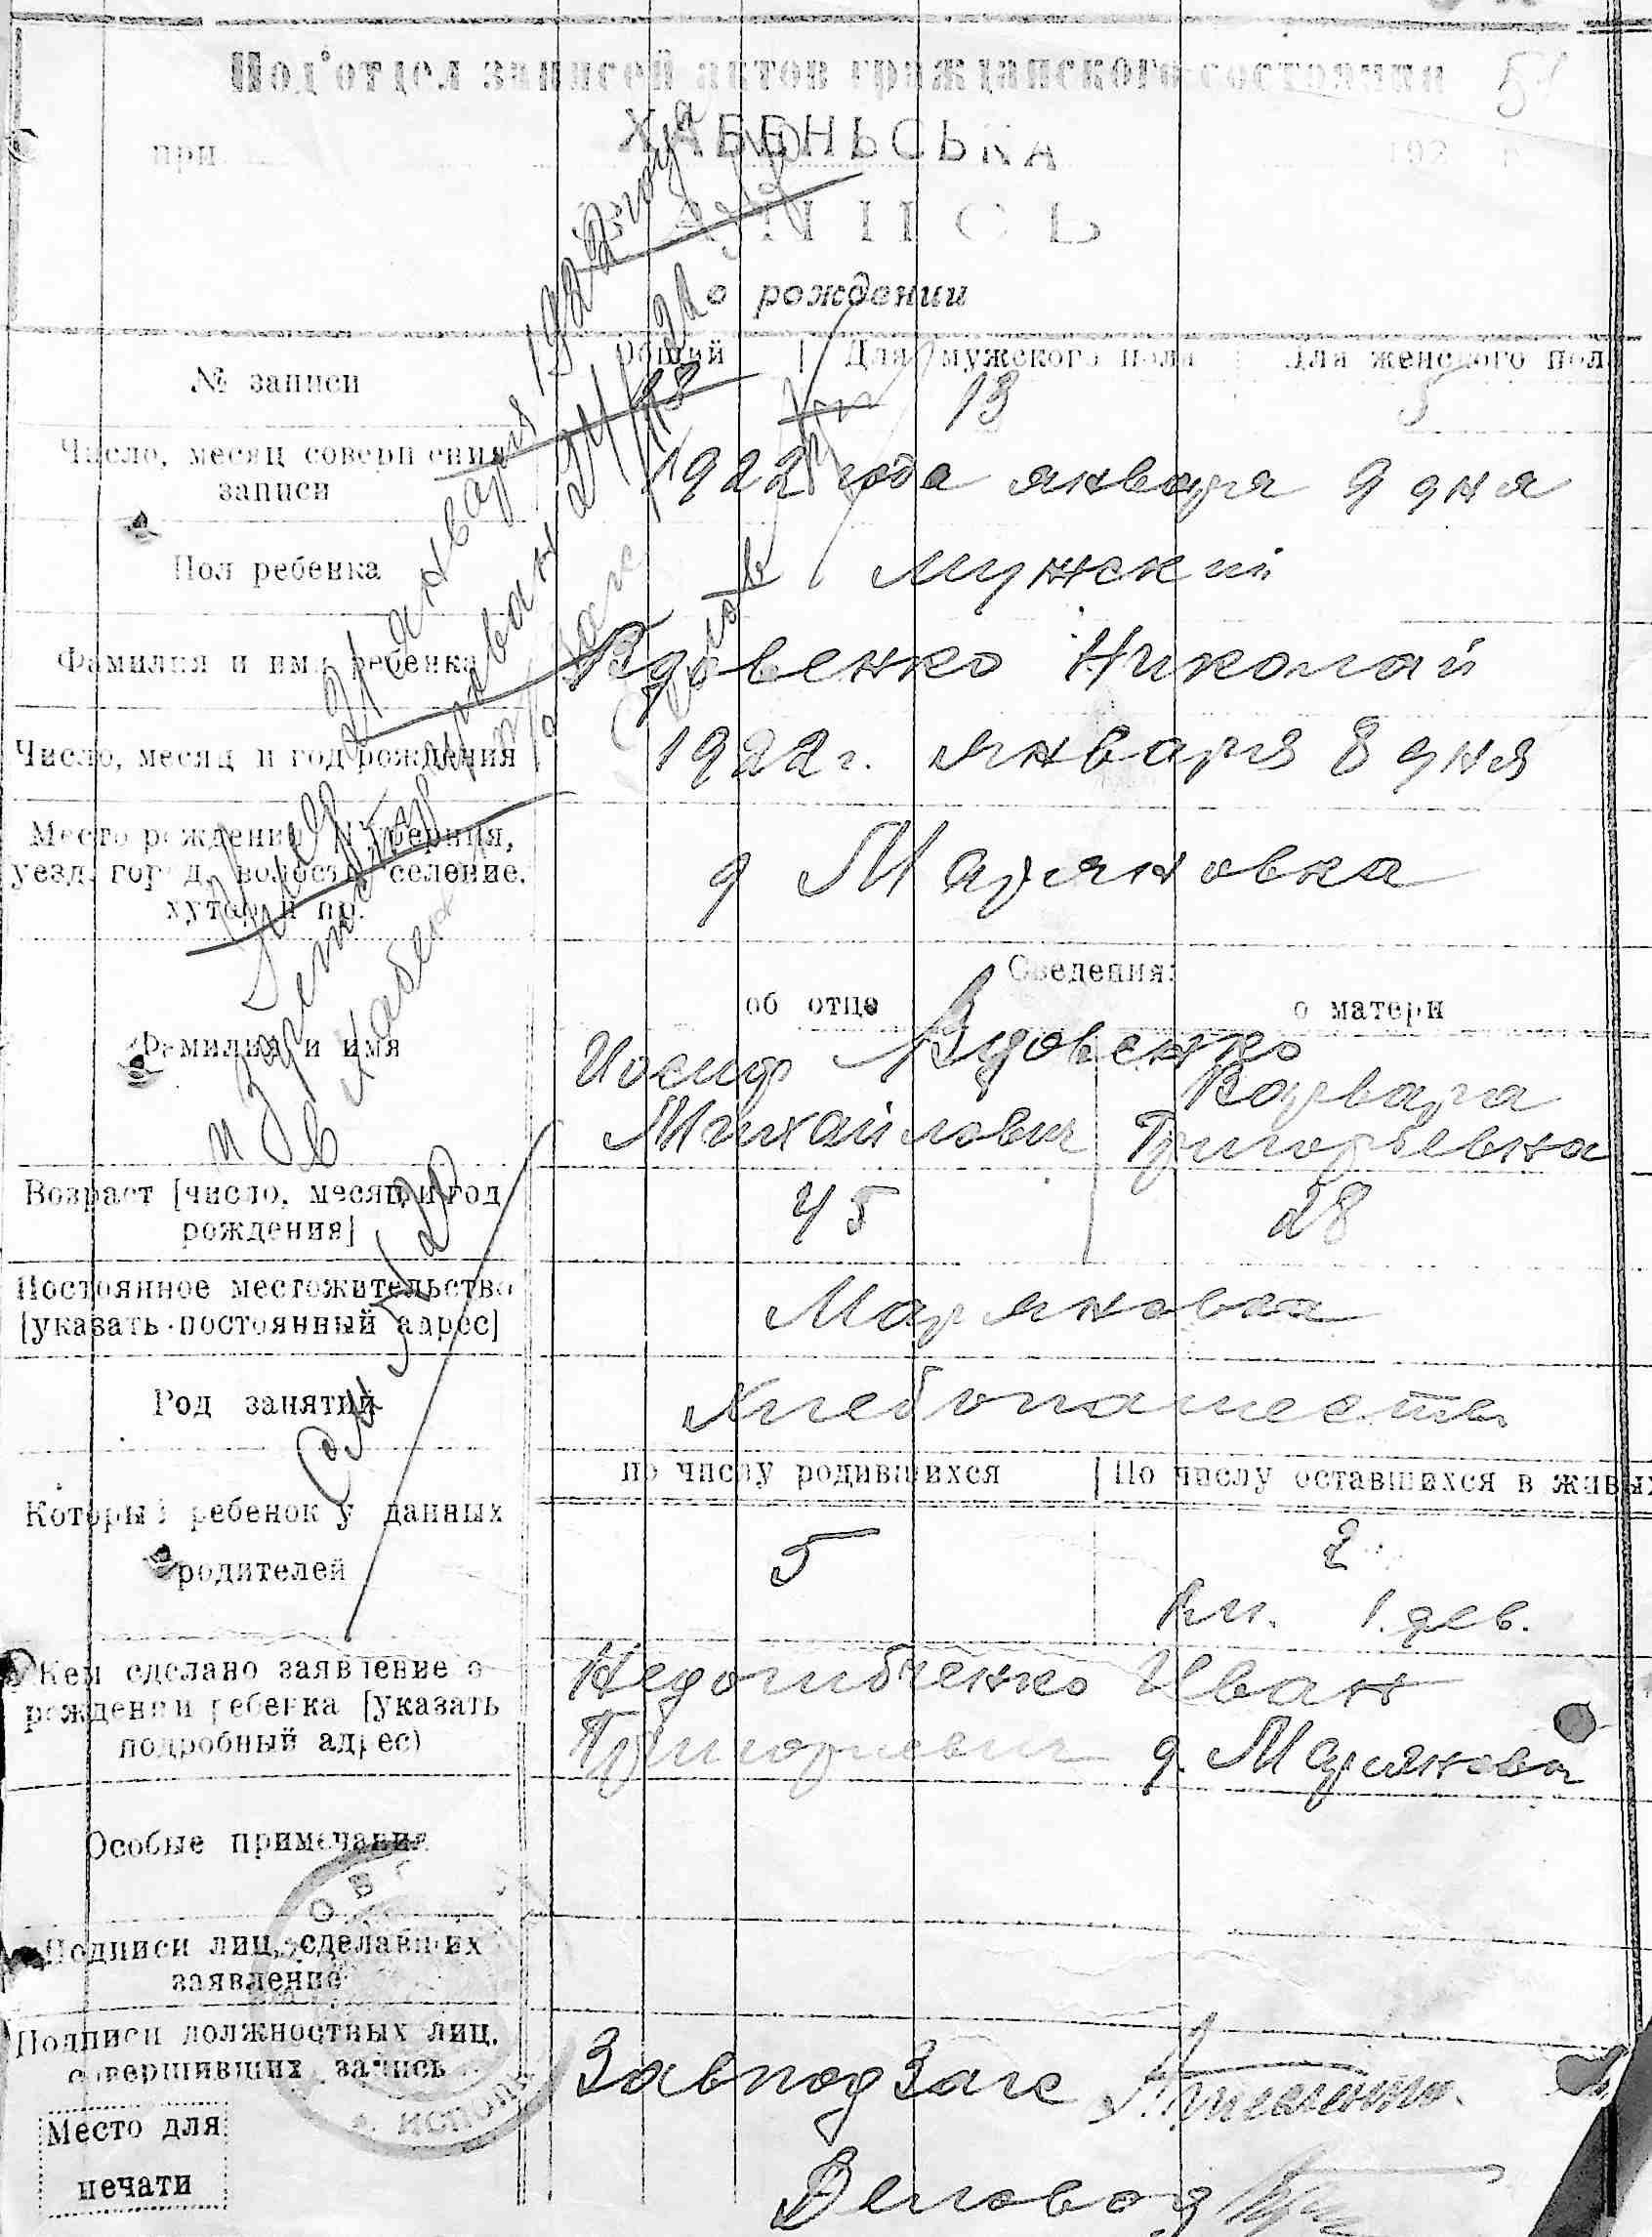 Под'отдел записей актов гражданского состояния 51
при ХАБЕНЬСЬКА 192 г
ЗАПИСЬ
о рождении
№ записи
Общий Для мужского пола Для женского пол
13 5
Число, месяц соверш ения записи
1922 года января 9 дня
Пол ребенка
мужский
Фамилия и имя ребенка
Вдовенко Николай
Число, месяц и год рождения
1922 г. января 8 дня
Место рождения губерния,
уезд, город, волость, селение,
хутор и пр.
д Маряновка
Сведения:
об отце о матери
Фамилия и имя
Вдовенко
Иосиф Варвара
Михайлович Григорьевна
Возраст [число, месяц и год
рождения]
45 28
Постоянное местожительство
[указать постоянный адрес]
Маряновка
Род занятий
Хлебопашеств
по числу родившихся По числу оставшихся в живых
Который ребенок у данных
родителей
5 2
1 дев.
Кем сделано заявление о
рождении ребенка [указать
подробный адрес)
Иван
Григориевич д. Маряновка
Особые примечания
Подписи лиц, сделавших
заявление
Подписи должностных лиц,
совершивших запись
ЗавподЗагс
Место для
печати
Деловод
21 января 1922 года
и Зарегистрирован
в Хабен
См. №
исполн